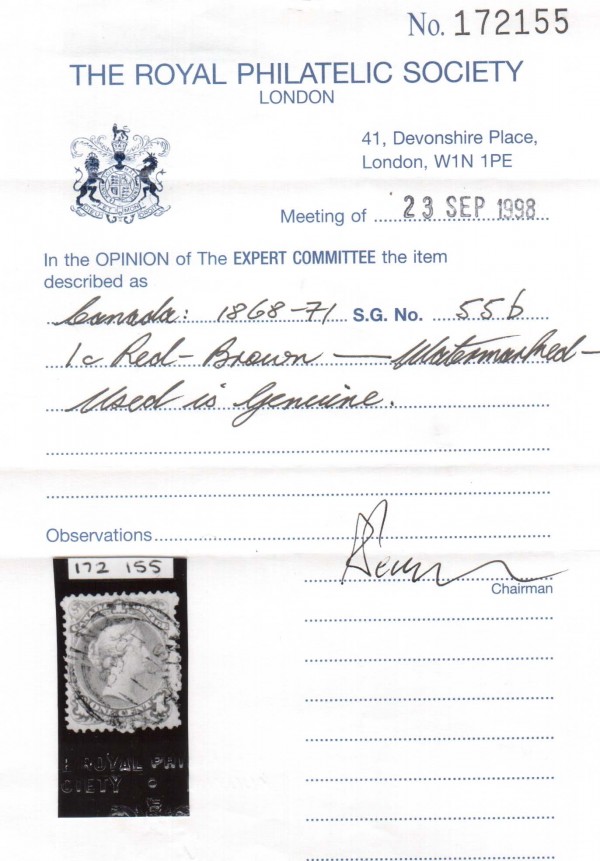 No. 172155
THE ROYAL PHILATELIC SOCIETY
LONDON
41, Devonshire Place,
London, W1N 1PE
Meeting of 23 SEP 1998
In the OPINION of The EXPERT COMMITTEE the item
described as
Canada: 1868-71 S.G. No. 55b
1c Red-Brown — Watermarked -
Used is Genuine.
Observations
Chairman
172 155
ROYAL PHI
CIETY